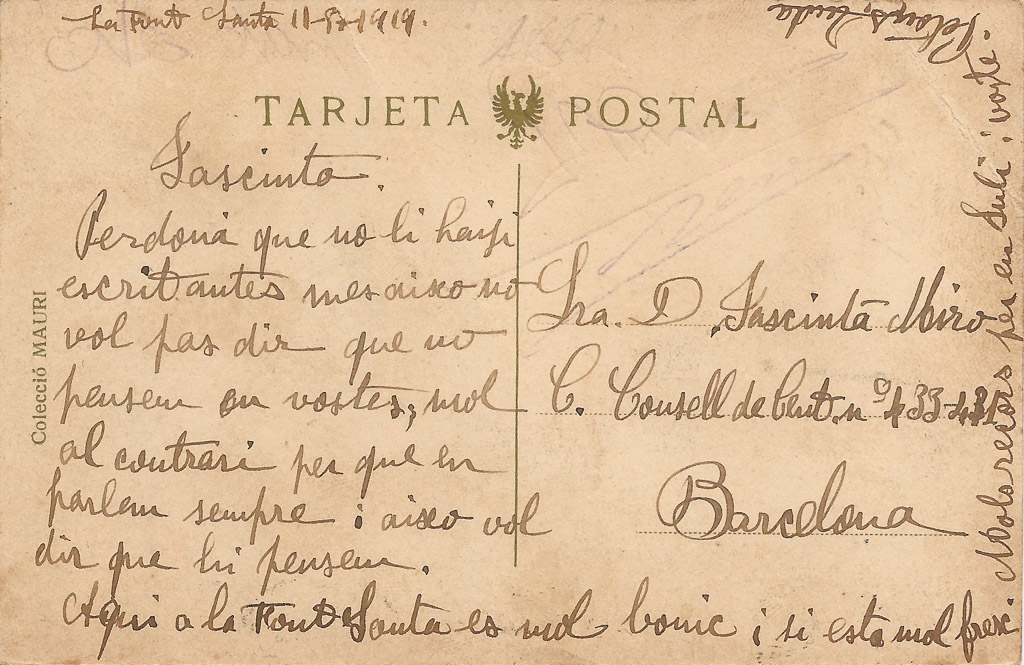 La Font Santa 11-8-1919.
TARJETA POSTAL
Jascinta.
Perdona que no li haiji
escrit antes mes aixo no
vol pas dir que no
pensem en vostes, mol
al contrari per que en
parlem sempre i aixo vol
dir que hi pensem.
Aqui a la Font Santa es mol bonic i si esta mol fresc.
Mols recors per en Juli i voste.
Petons,
Sra. D. Jascinta Miro
C. Consell de Cent. nº 433
Barcelona
Colecció MAURI